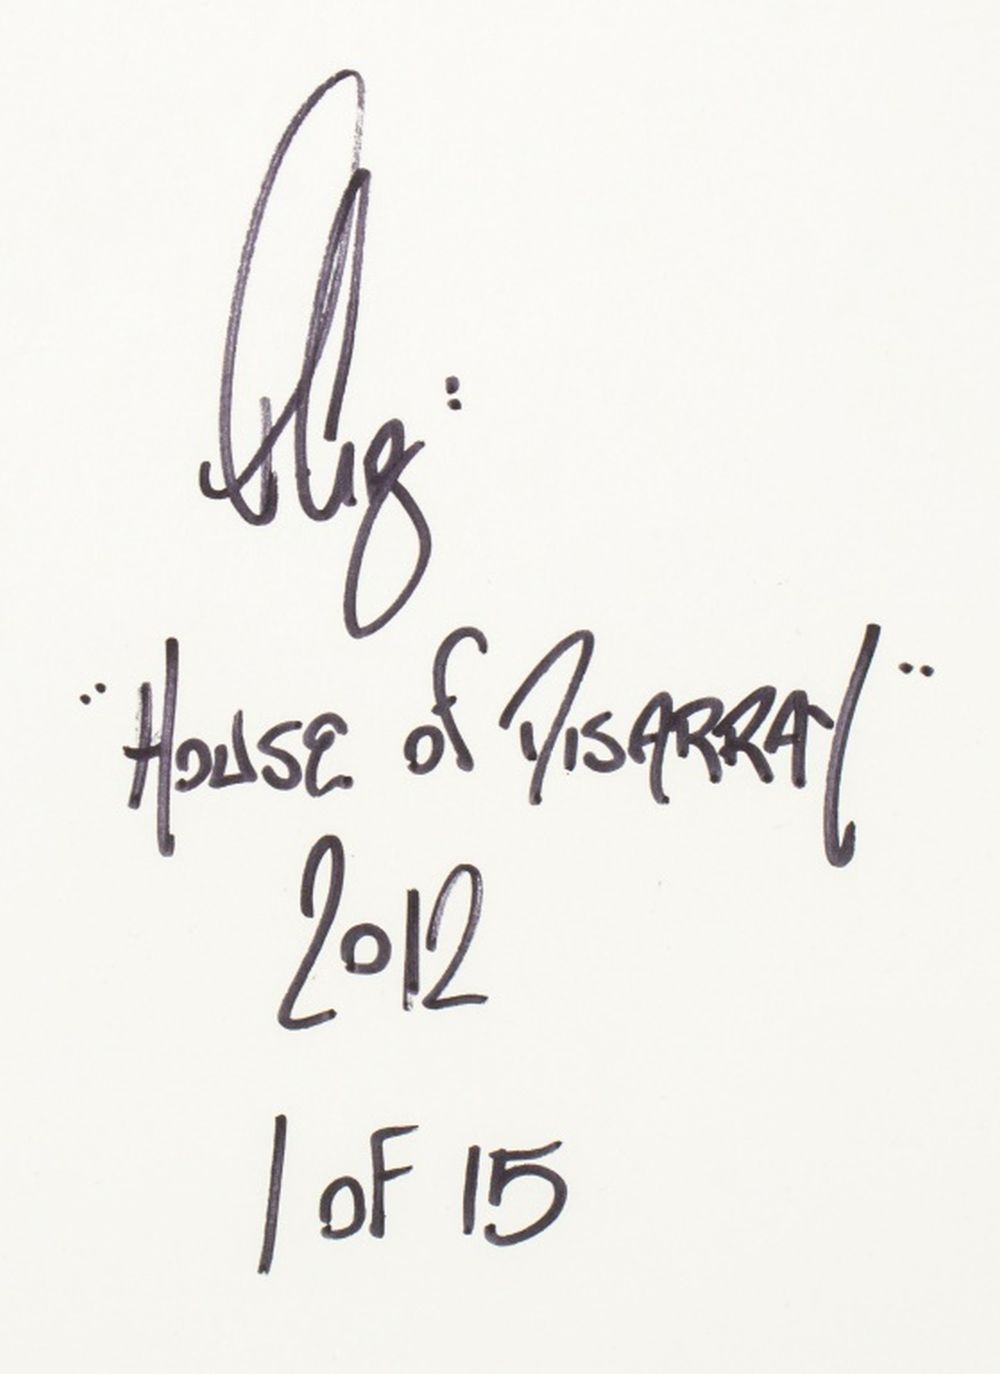 "House of Disarray"
2012
1 of 15